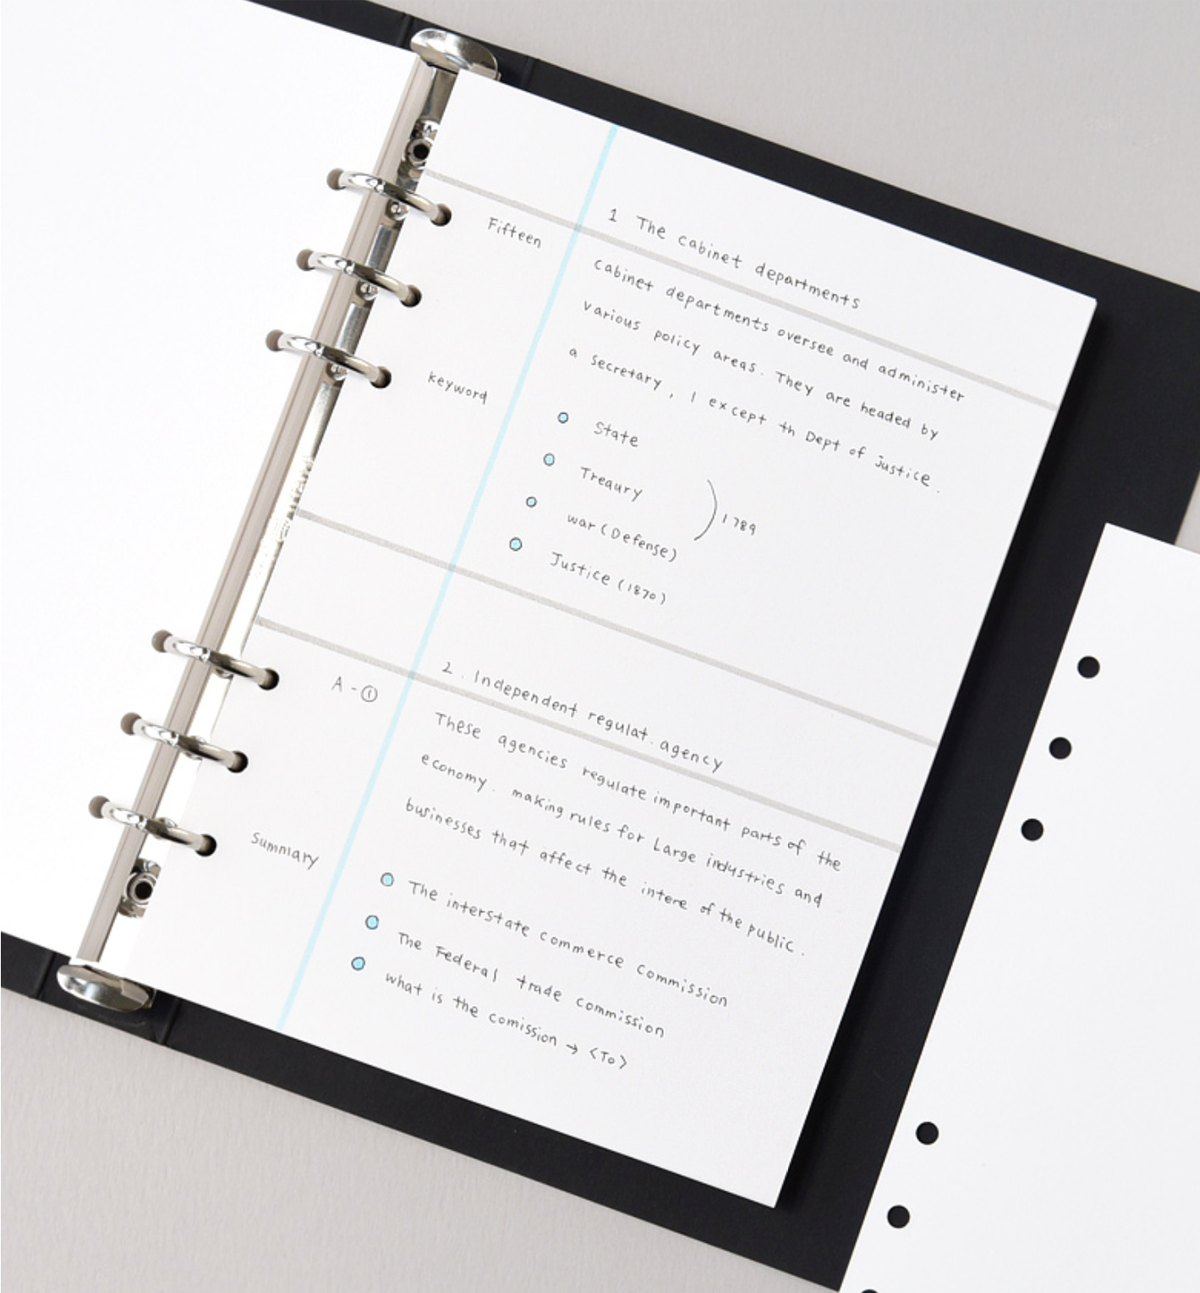 Fifteen
1 The cabinet departments
cabinet departments oversee and administer
various policy areas. They are headed by
keyword
a secretary, 1 except th Dept of justice.
State
Treaury
war (Defense)
) 1789
Justice (1870)
A - ①
2. Independent regulat. agency
These agencies regulate important parts of the
economy. making rules for Large industries and
businesses that affect the intere of the public.
Summary
The interstate commerce commission
The Federal trade commission
what is the comission → <To>